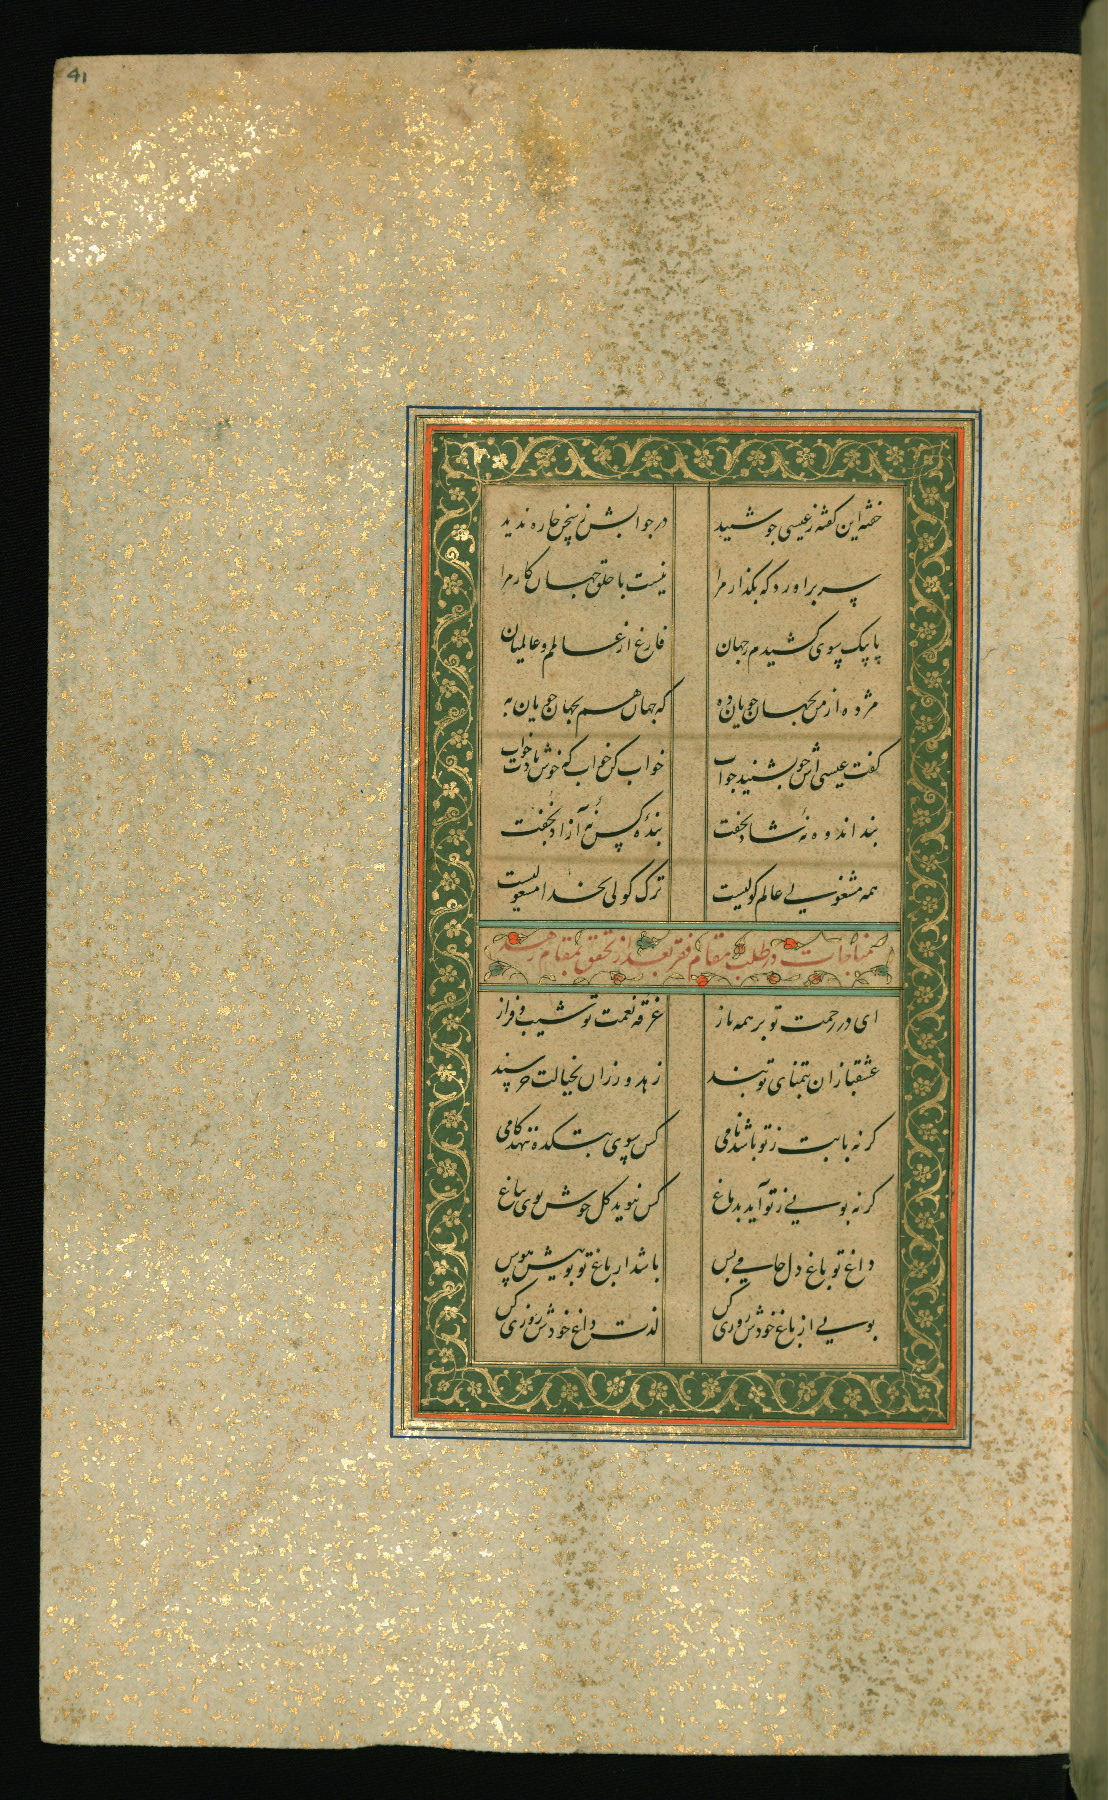 41
خفته این گفته ز عیسی چو شنید در جوابش ز سخن چاره ندید
سر برآورد که بگذار مرا نیست با خلق جهان کار مرا
پا سوی کشیدم ز جهان فارغ از عالم و عالمیان
مژده از من بجهان جویان ده که جهان هم بجهان جویان به
گفت عیسیش چو بشنید جواب خواب کن خواب که خوش بادت خواب
بند اندوه نهٔ شاد بخفت بندهٔ کس نهٔ آزاد بخفت
همه مشغولی عالم گولیست ترک گولی بخدا مشغولیست
مناجات در طلب مقام فقر بعد از تحقق بمقام زهد
ای در رحمت تو بر همه باز غرقه نعمت تو شیب و فراز
عشقبازان بتمنای تو بند زهد ورزان بخیالت خرسند
گر نه بابت ز تو باشد نامی کس سوی بتکده ننهد گامی
گر نه بویی ز تو آید بدماغ کس نبوید گل خوش بوی بباغ
داغ تو باغ دل جامی بس باشد از باغ تو بوییش هوس
بویی از باغ خودش روزی کن لذت داغ خودش روزی کن